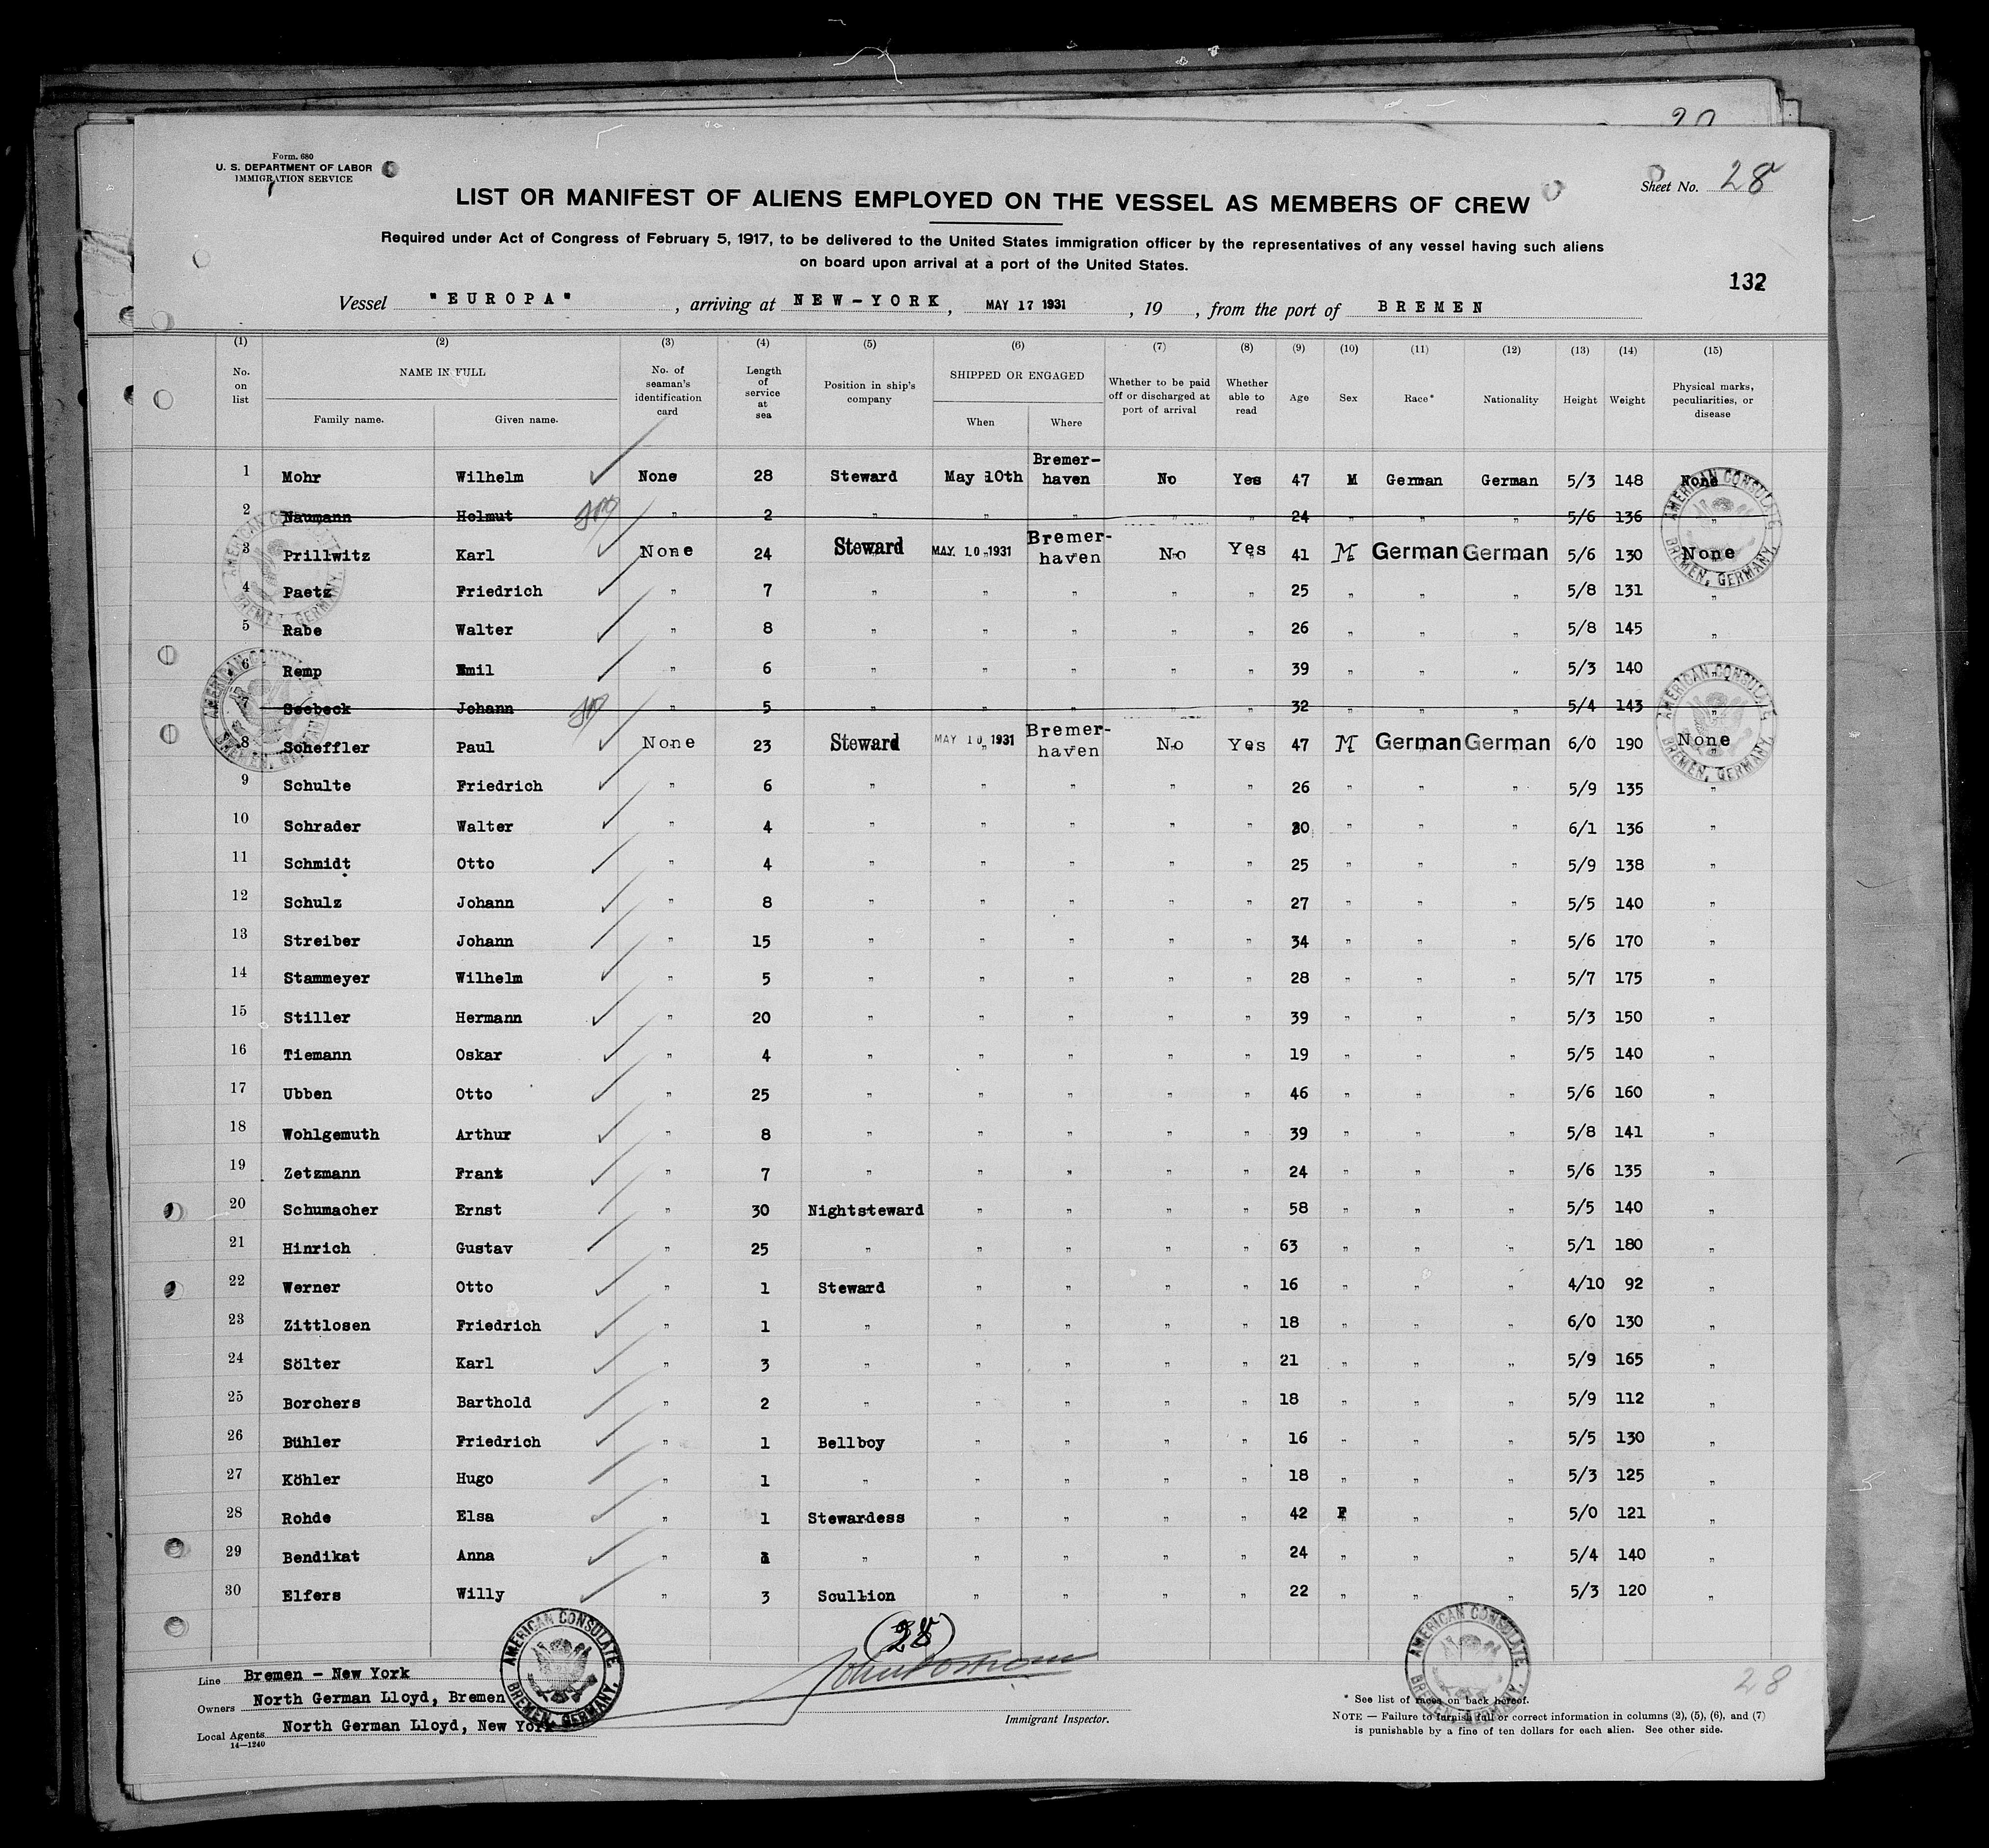 20
Form. 680
U. S. DEPARTMENT OF LABOR
IMMIGRATION SERVICE
Sheet No. 28
LIST OR MANIFEST OF ALIENS EMPLOYED ON THE VESSEL AS MEMBERS OF CREW
Required under Act of Congress of February 5, 1917, to be delivered to the United States immigration officer by the representatives of any vessel having such aliens
on board upon arrival at a port of the United States.
132
Vessel "EUROPA" , arriving at NEW-YORK , MAY 17 1931 , 19 , from the port of BREMEN
(1) (2) (3) (4) (5) (6) (7) (8) (9) (10) (11) (12) (13) (14) (15)
No. on list NAME IN FULL Family name. Given name. No. of seaman's identification card Length of service at sea Position in ship's company SHIPPED OR ENGAGED When Where Whether to be paid off or discharged at port of arrival Whether able to read Age Sex Race* Nationality Height Weight Physical marks, peculiarities, or disease
1 Mohr Wilhelm None 28 Steward May 10th Bremer-haven No Yes 47 M German German 5/3 148 None
2 Naumann Helmut " 2 " " " " " 24 " " " 5/6 136 "
3 Prillwitz Karl None 24 Steward MAY 10 1931 Bremer-haven No Yes 41 M German German 5/6 130 None
4 Paetz Friedrich " 7 " " " " " 25 " " " 5/8 131 "
5 Rabe Walter " 8 " " " " " 26 " " " 5/8 145 "
6 Remp Emil " 6 " " " " " 39 " " " 5/3 140 "
7 Seebeck Johann " 5 " " " " " 32 " " " 5/4 143 "
8 Scheffler Paul None 23 Steward MAY 10 1931 Bremer-haven No Yes 47 M German German 6/0 190 None
9 Schulte Friedrich " 6 " " " " " 26 " " " 5/9 135 "
10 Schrader Walter " 4 " " " " " 20 " " " 6/1 136 "
11 Schmidt Otto " 4 " " " " " 25 " " " 5/9 138 "
12 Schulz Johann " 8 " " " " " 27 " " " 5/5 140 "
13 Streiber Johann " 15 " " " " " 34 " " " 5/6 170 "
14 Stammeyer Wilhelm " 5 " " " " " 28 " " " 5/7 175 "
15 Stiller Hermann " 20 " " " " " 39 " " " 5/3 150 "
16 Tiemann Oskar " 4 " " " " " 19 " " " 5/5 140 "
17 Ubben Otto " 25 " " " " " 46 " " " 5/6 160 "
18 Wohlgemuth Arthur " 8 " " " " " 39 " " " 5/8 141 "
19 Zetzmann Franz " 7 " " " " " 24 " " " 5/6 135 "
20 Schumacher Ernst " 30 Nightsteward " " " " 58 " " " 5/5 140 "
21 Hinrich Gustav " 25 " " " " " 63 " " " 5/1 180 "
22 Werner Otto " 1 Steward " " " " 16 " " " 4/10 92 "
23 Zittlosen Friedrich " 1 " " " " " 18 " " " 6/0 130 "
24 Sölter Karl " 3 " " " " " 21 " " " 5/9 165 "
25 Borchers Barthold " 2 " " " " " 18 " " " 5/9 112 "
26 Bühler Friedrich " 1 Bellboy " " " " 16 " " " 5/5 130 "
27 Köhler Hugo " 1 " " " " " 18 " " " 5/3 125 "
28 Rohde Elsa " 1 Stewardess " " " " 42 F " " 5/0 121 "
29 Bendikat Anna " " " " " " 24 " " " 5/4 140 "
30 Elfers Willy " 3 Scullion " " " " 22 " " " 5/3 120 "
(28)
AMERICAN CONSULATE
BREMEN, GERMANY.
Line Bremen - New York
Owners North German Lloyd, Bremen
Local Agents North German Lloyd, New York
14—1240
Immigrant Inspector.
28
* See list of races on back hereof.
NOTE — Failure to furnish full or correct information in columns (2), (5), (6), and (7)
is punishable by a fine of ten dollars for each alien. See other side.